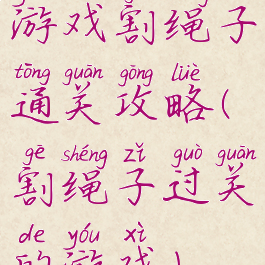 游戏割绳子
tōng guān gōng lüè
通关攻略(
gē shéng zǐ guò guān
割绳子过关
de yóu xì
的游戏)